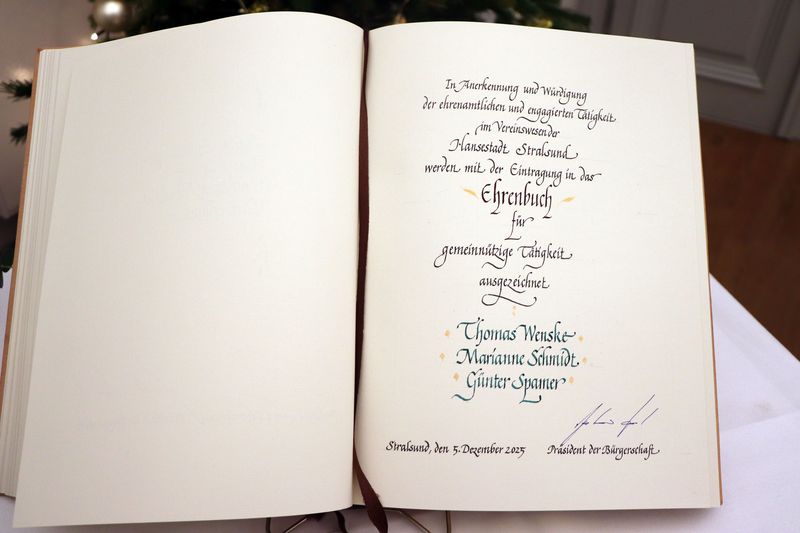 In Anerkennung und Würdigung
der ehrenamtlichen und engagierten Tätigkeit
im Vereinswesen der
Hansestadt Stralsund
werden mit der Eintragung in das
Ehrenbuch
für
gemeinnützige Tätigkeit
ausgezeichnet
Thomas Wenske
Marianne Schmidt
Günter Spamer
Stralsund, den 5. Dezember 2025 Präsident der Bürgerschaft